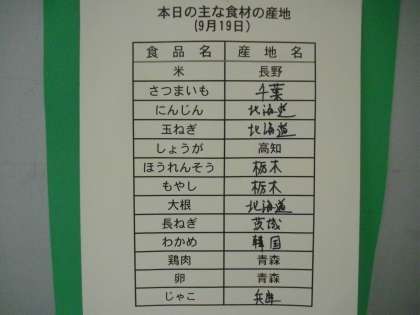 本日の主な食材の産地
(9月19日)
食品名 産地名
米 長野
さつまいも 千葉
にんじん 北海道
玉ねぎ 北海道
しょうが 高知
ほうれんそう 栃木
もやし 栃木
大根 北海道
長ねぎ 茨城
わかめ 韓国
鶏肉 青森
卵 青森
じゃこ 兵庫